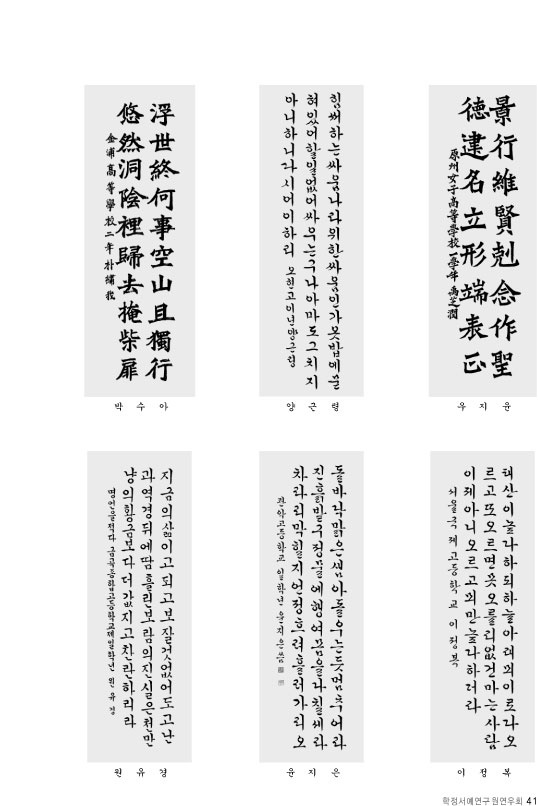 浮世終何事空山且獨行
悠然洞陰裡歸去掩柴扉
金浦高等學校二年 朴繡我
박 수 아
힘써하는싸움나라위한싸움인가옷밥에물
혀있어할일없어싸우는구나아마도그치지
아니하니다시어이하리 모현고이년양근령
양 근 령
景行維賢剋念作聖
德建名立形端表正
原州女子高等學校一學年 禹芝潤
우 지 윤
지금의삶이고되고보잘것없어도고난
과역경뒤에땀흘린보람의진실은천만
냥의황금보다더값지고찬란하리라
명언을적다 금곡종합고등학교제일학년 원유경
원 유 경
돌바닥맑은샘아돌우는듯멈추어라
진흙밭구정물에행여몸을나칠세라
차라리막힐지언정흐려흘러가리오
관악고등학교 일학년 윤지은씀
윤 지 은
태산이높다하되하늘아래뫼이로다오
르고또오르면못오를리없건마는사람
이제아니오르고뫼만높다하더라
서울국제고등학교 이정복
이 정 복
학정서예연구원연우회 41